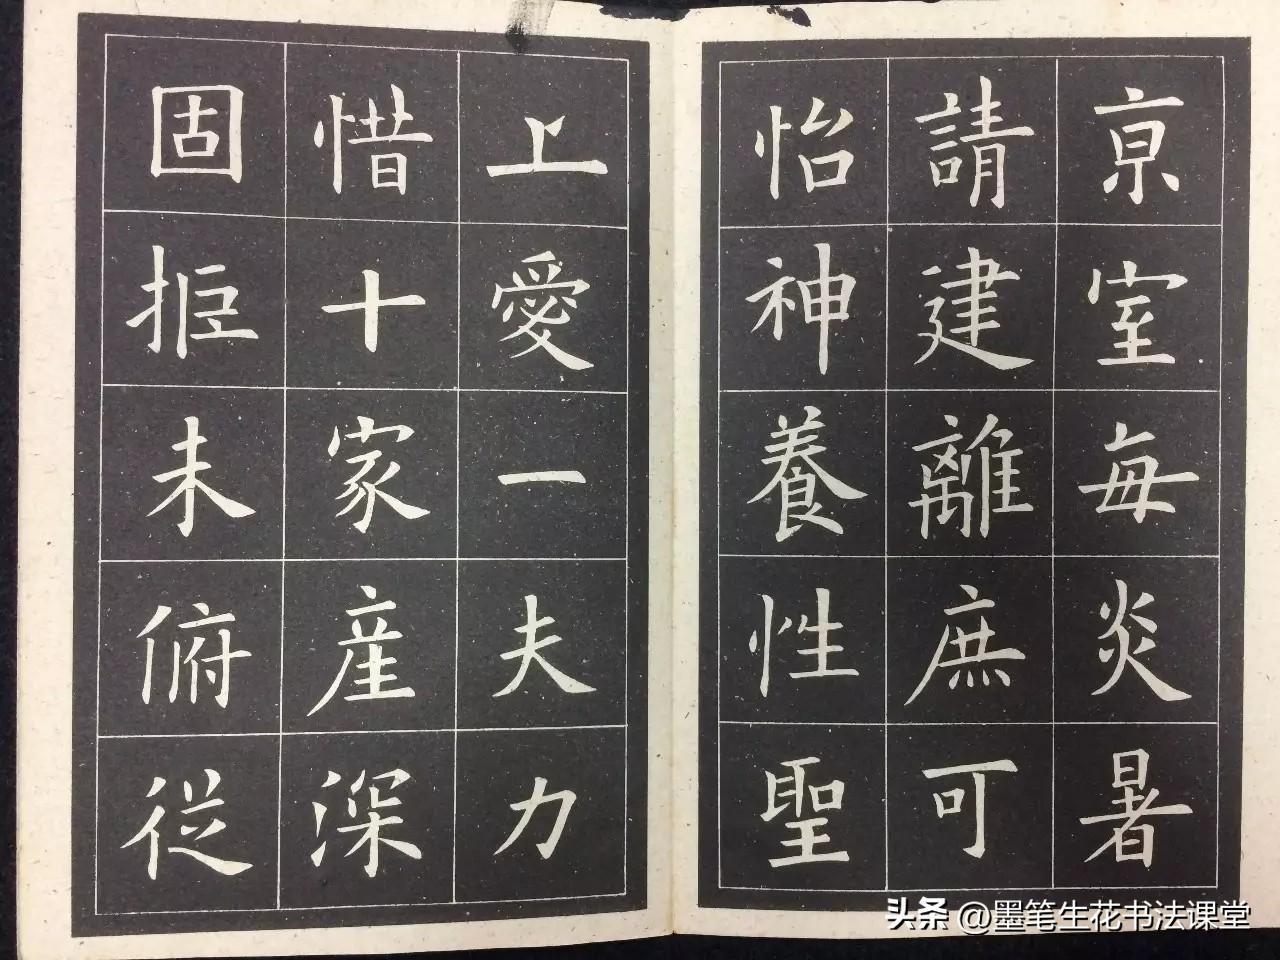 亰室毎炎暑
請建離庶可
怡神養性聖
上愛一夫力
惜十家産深
固拒未俯従
头条 @墨笔生花书法课堂